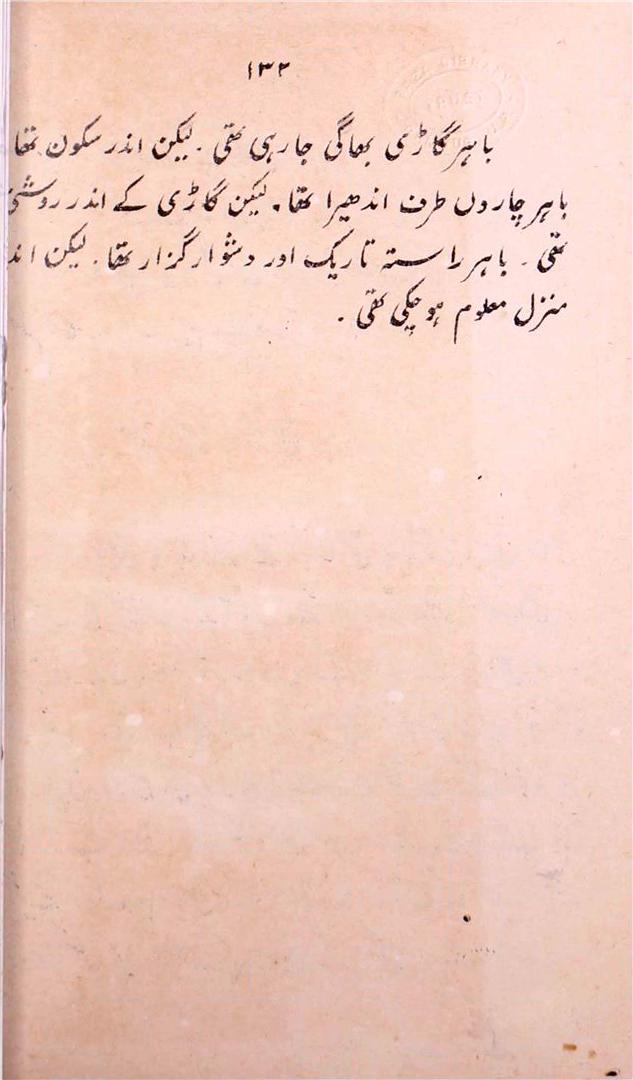 ۱۳۲
باہر گاڑی بھاگی جا رہی تھی۔ لیکن اندر سکون تھا
باہر چاروں طرف اندھیرا تھا۔ لیکن گاڑی کے اندر روشنی
تھی۔ باہر راستہ تاریک اور دشوار گزار تھا۔ لیکن
منزل معلوم ہو چکی تھی۔